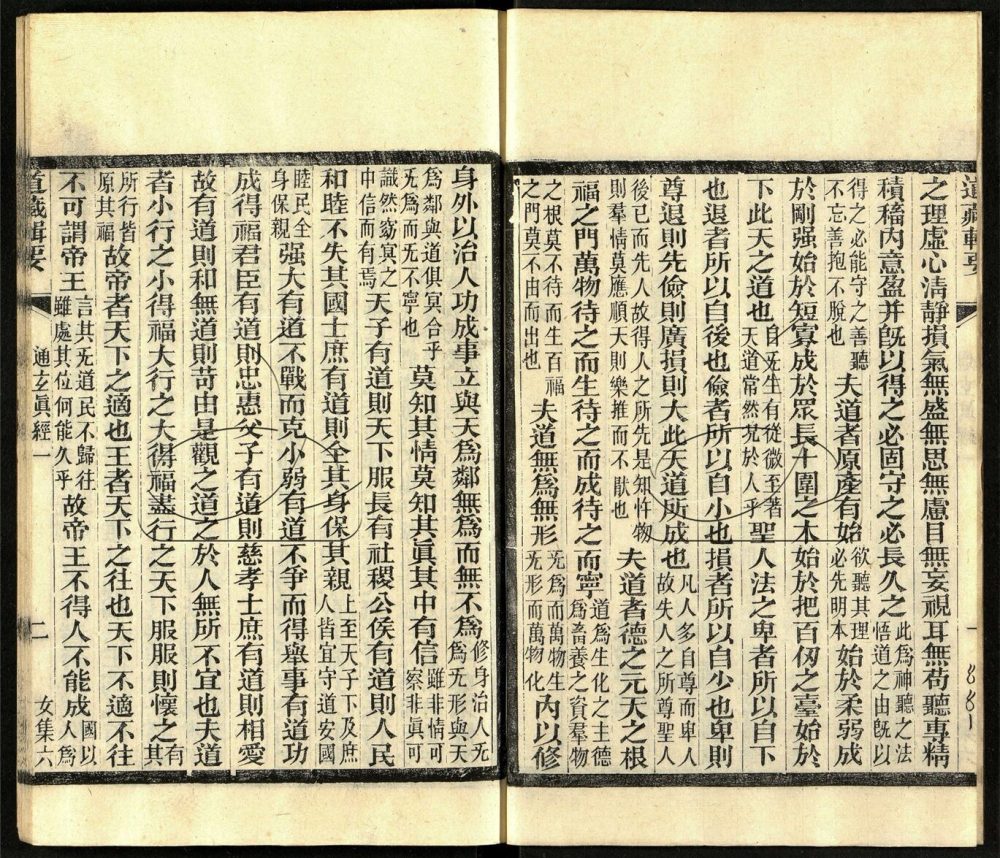 道藏輯要
之理虛心清靜損氣無盛無思無慮目無妄視耳無苟聽專精
積穡內意盈并既以得之必固守之必長久之 此為神聽之法悟道之由既以
得之必能守之善聽不忘善抱不脫也 夫道者原產有始 欲聽其理必先明本 始於柔弱成
於剛强始於短寡成於眾長十圍之木始於把百仞之臺始於
下此天之道也 自无生有從微至著天道常然況於人乎 聖人法之卑者所以自下
也退者所以自後也儉者所以自小也損者所以自少也卑則
尊退則先儉則廣損則大此天道所成也 凡人多自尊而卑人故失人之所尊聖人
後己而先人故得人之所先是知忤物則羣情莫應順天則樂推而不猒也 夫道者德之元天之根
福之門萬物待之而生待之而成待之而寧 道為生化之主德為畜養之資羣物
之根莫不待而生百福之門莫不由而出也 夫道無為無形 无為而萬物生无形而萬物化 內以修
一
身外以治人功成事立與天為鄰無為而無不為 修身治人无為无形與天
為鄰與道俱冥合乎无為而无不寧也 莫知其情莫知其真其中有信 雖非情可察非真可
識然窈冥之中信而有焉 天子有道則天下服長有社稷公侯有道則人民
和睦不失其國士庶有道則全其身保其親 上至天子下及庶人皆宜守道安國
睦民全身保親 强大有道不戰而克小弱有道不争而得舉事有道功
成得福君臣有道則忠惠父子有道則慈孝士庶有道則相愛
故有道則和無道則苛由是觀之道之於人無所不宜也夫道
者小行之小得福大行之大得福盡行之天下服服則懷之 有
所行皆原其福 故帝者天下之適也王者天下之往也天下不適不往
不可謂帝王 言其无道民不歸往雖處其位何能久乎 故帝王不得人不能成 國以人為
道藏輯要
通玄眞經一
二
女集六